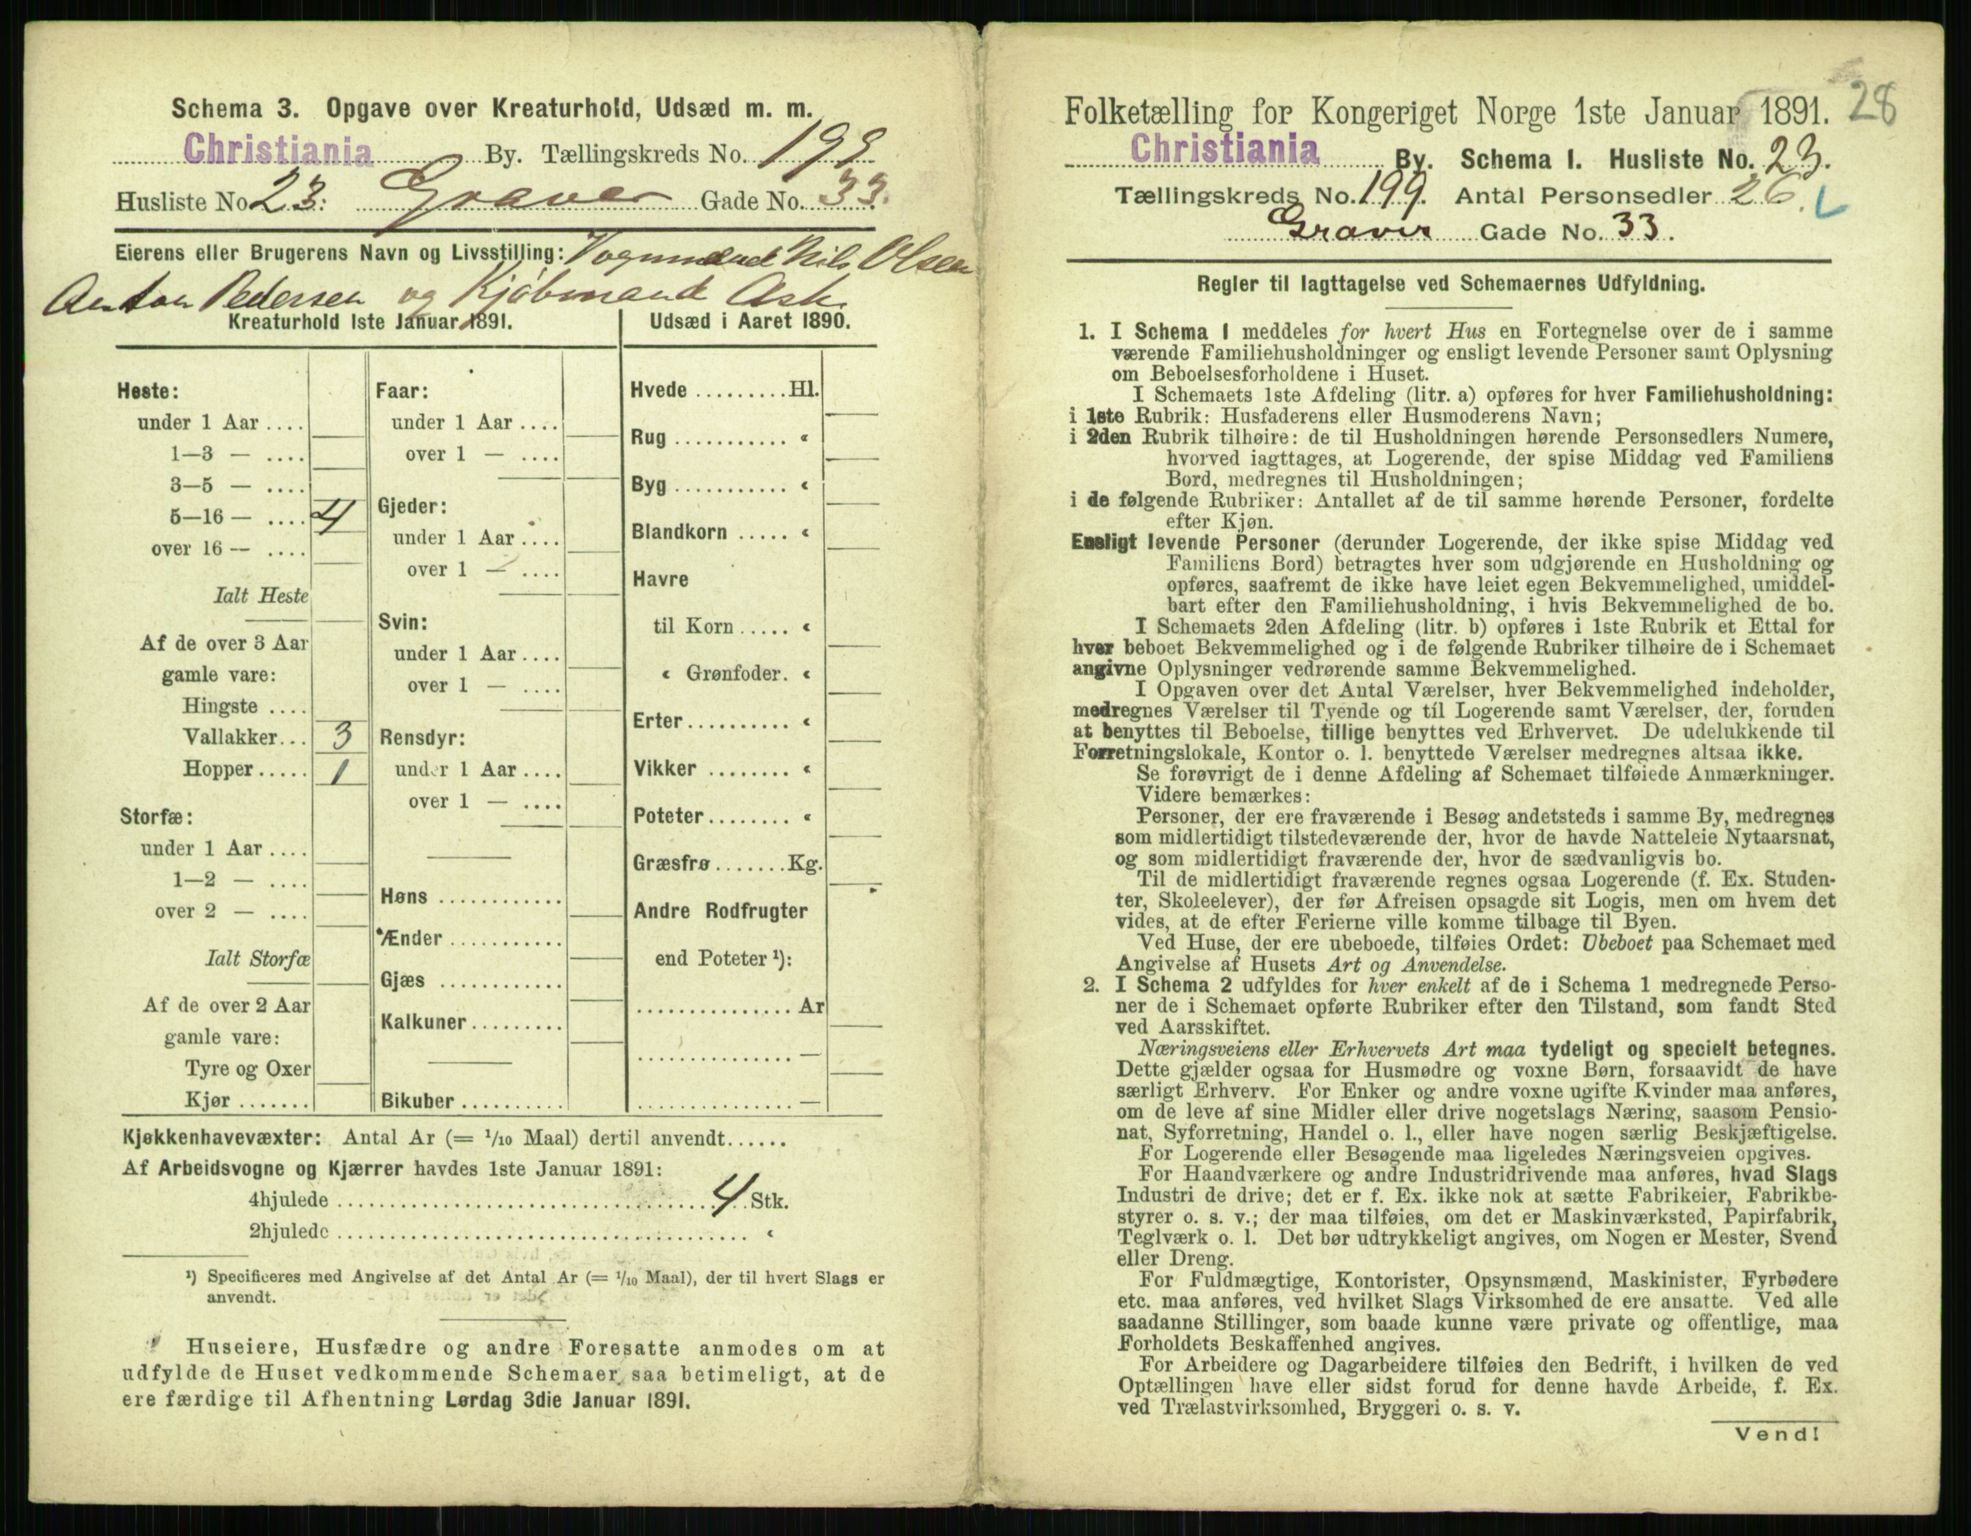 Schema 3. Opgave over Kreaturhold, Udsæd m. m.
Christiania By. Tællingskreds No. 199
Husliste No 23. Graver Gade No. 33.
Eierens eller Brugerens Navn og Livsstilling: Vognmænd Nils Olsen
Anton Pedersen og Kjøbmand Ask
Kreaturhold 1ste Januar 1891.
Heste:
under 1 Aar ....
1—3 — ....
3—5 — ....
5—16 — .... 4
over 16 — ....
Ialt Heste
Af de over 3 Aar
gamle vare:
Hingste ....
Vallakker... 3
Hopper..... 1
Storfæ:
under 1 Aar ....
1—2 — ....
over 2 — ....
Ialt Storfæ
Af de over 2 Aar
gamle vare:
Tyre og Oxer
Kjør .......
Faar:
under 1 Aar ....
over 1 — ....
Gjeder:
under 1 Aar ....
over 1 — ....
Svin:
under 1 Aar ....
over 1 — ....
Rensdyr:
under 1 Aar ....
over 1 — ....
Høns ............
Ænder...........
Gjæs ............
Kalkuner.........
Bikuber ..........
Udsæd i Aaret 1890.
Hvede ......... Hl.
Rug ........... «
Byg ........... «
Blandkorn ..... «
Havre
til Korn ..... «
« Grønfoder. «
Erter.......... «
Vikker ........ «
Poteter........ «
Græsfrø....... Kg.
Andre Rodfrugter
end Poteter ¹):
............... Ar
............... —
............... —
Kjøkkenhavevæxter: Antal Ar (= 1/10 Maal) dertil anvendt......
Af Arbeidsvogne og Kjærrer havdes 1ste Januar 1891:
4hjulede .................................... 4 Stk.
2hjulede .................................... «
¹) Specificeres med Angivelse af det Antal Ar (= 1/10 Maal), der til hvert Slags er
anvendt.
Huseiere, Husfædre og andre Foresatte anmodes om at
udfylde de Huset vedkommende Schemaer saa betimeligt, at de
ere færdige til Afhentning Lørdag 3die Januar 1891.
28
Folketælling for Kongeriget Norge 1ste Januar 1891.
Christiania By. Schema 1. Husliste No. 23.
Tællingskreds No. 199. Antal Personsedler 26.
Graver Gade No. 33.
Regler til Iagttagelse ved Schemaernes Udfyldning.
1. I Schema 1 meddeles for hvert Hus en Fortegnelse over de i samme
værende Familiehusholdninger og ensligt levende Personer samt Oplysning
om Beboelsesforholdene i Huset.
I Schemaets 1ste Afdeling (litr. a) opføres for hver Familiehusholdning:
i 1ste Rubrik: Husfaderens eller Husmoderens Navn;
i 2den Rubrik tilhøire: de til Husholdningen hørende Personsedlers Numere,
hvorved iagttages, at Logerende, der spise Middag ved Familiens
Bord, medregnes til Husholdningen;
i de følgende Rubriker: Antallet af de til samme hørende Personer, fordelte
efter Kjøn.
Ensligt levende Personer (derunder Logerende, der ikke spise Middag ved
Familiens Bord) betragtes hver som udgjørende en Husholdning og
opføres, saafremt de ikke have leiet egen Bekvemmelighed, umiddel-
bart efter den Familiehusholdning, i hvis Bekvemmelighed de bo.
I Schemaets 2den Afdeling (litr. b) opføres i 1ste Rubrik et Ettal for
hver beboet Bekvemmelighed og i de følgende Rubriker tilhøire de i Schemaet
angivne Oplysninger vedrørende samme Bekvemmelighed.
I Opgaven over det Antal Værelser, hver Bekvemmelighed indeholder,
medregnes Værelser til Tyende og til Logerende samt Værelser, der, foruden
at benyttes til Beboelse, tillige benyttes ved Erhvervet. De udelukkende til
Forretningslokale, Kontor o. l. benyttede Værelser medregnes altsaa ikke.
Se forøvrigt de i denne Afdeling af Schemaet tilføiede Anmærkninger.
Videre bemærkes:
Personer, der ere fraværende i Besøg andetsteds i samme By, medregnes
som midlertidigt tilstedeværende der, hvor de havde Natteleie Nytaarsnat,
og som midlertidigt fraværende der, hvor de sædvanligvis bo.
Til de midlertidigt fraværende regnes ogsaa Logerende (f. Ex. Studen-
ter, Skoleelever), der før Afreisen opsagde sit Logis, men om hvem det
vides, at de efter Ferierne ville komme tilbage til Byen.
Ved Huse, der ere ubeboede, tilføies Ordet: Ubeboet paa Schemaet med
Angivelse af Husets Art og Anvendelse.
2. I Schema 2 udfyldes for hver enkelt af de i Schema 1 medregnede Perso-
ner de i Schemaet opførte Rubriker efter den Tilstand, som fandt Sted
ved Aarsskiftet.
Næringsveiens eller Erhvervets Art maa tydeligt og specielt betegnes.
Dette gjælder ogsaa for Husmødre og voxne Børn, forsaavidt de have
særligt Erhverv. For Enker og andre voxne ugifte Kvinder maa anføres,
om de leve af sine Midler eller drive nogetslags Næring, saasom Pensio-
nat, Syforretning, Handel o. l., eller have nogen særlig Beskjæftigelse.
For Logerende eller Besøgende maa ligeledes Næringsveien opgives.
For Haandværkere og andre Industridrivende maa anføres, hvad Slags
Industri de drive; det er f. Ex. ikke nok at sætte Fabrikeier, Fabrikbe-
styrer o. s. v.; der maa tilføies, om det er Maskinværksted, Papirfabrik,
Teglværk o. l. Det bør udtrykkeligt angives, om Nogen er Mester, Svend
eller Dreng.
For Fuldmægtige, Kontorister, Opsynsmænd, Maskinister, Fyrbødere
etc. maa anføres, ved hvilket Slags Virksomhed de ere ansatte. Ved alle
saadanne Stillinger, som baade kunne være private og offentlige, maa
Forholdets Beskaffenhed angives.
For Arbeidere og Dagarbeidere tilføies den Bedrift, i hvilken de ved
Optællingen have eller sidst forud for denne havde Arbeide, f. Ex.
ved Trælastvirksomhed, Bryggeri o. s. v.
Vend!